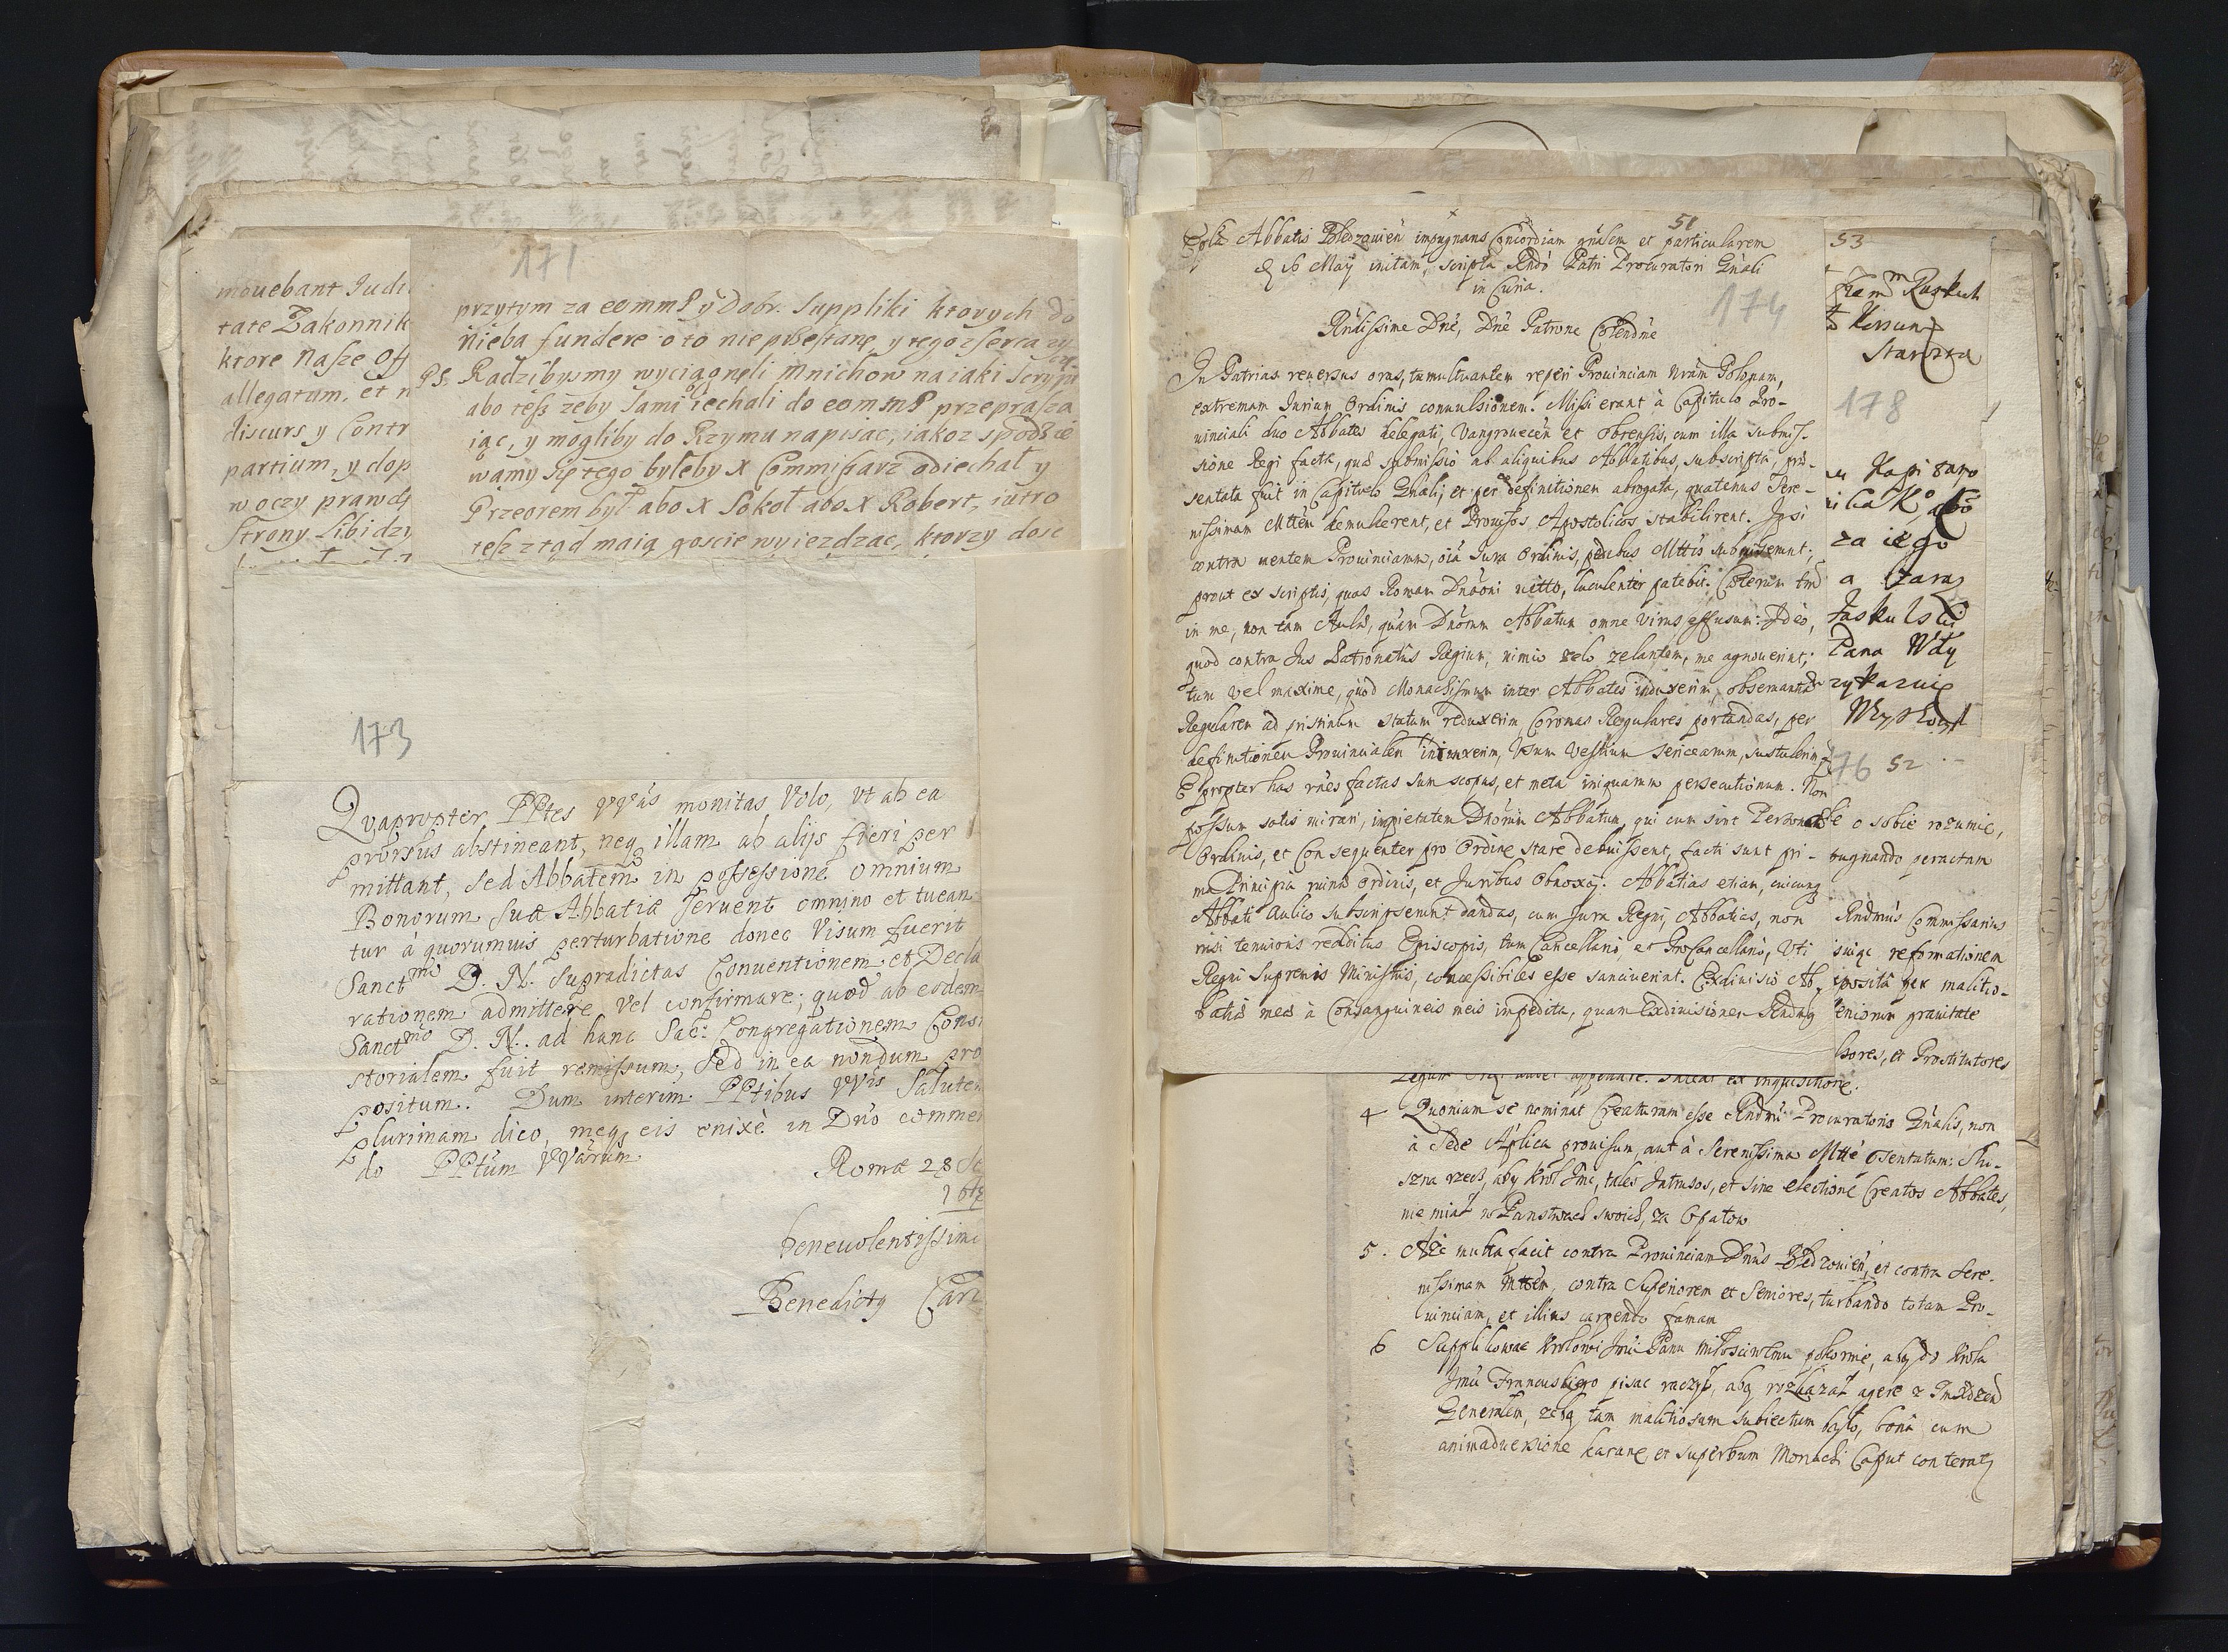 mouebant Judi
tate Zakonnik
ktore nasze Off
allegatum, et n
discurs y Contr
partium, y dop
w oczy prawdę
strony Sibi dzi
171
przytym za eommP y Dobr. Suppliki ktorych do
nieba fundere o to nie przestanę y tego z serca zy
PS. Radzibysmy wyciągnęli mnichow na iaki scrypt
abo tesz zeby sami iechali do eommP przeprasza
iąc, y mogliby do Rzymu napisac, iakoz spodzie
wamy się tego byleby X Commissarz odiechał y
Przeorem był abo X Sokoł abo X Robert, iutro
tesz ztąd maią goscie wyiezdzac, ktorzy dosc
173
Quapropter PPtes VVäs monitas Volo, vt ab ea
prorsus abstineant, neq illam ab alijs fieri per
mittant, sed Abbatem in possessione omnium
Bonorum suæ Abbatiæ seruent omnino et tuean
tur à quorumuis perturbatione donec Visum fuerit
Sanctmo D. N. supradictas Conuentionem et Decla
rationem admittere vel confirmare; quod ab eodem
Sanctmo D. N. ad hanc Sac: Congregationem Consi
storialem fuit remissum, sed in ea nondum pro
positum. Dum interim PPtibus VVis Salutem
plurimam dico, meq eis enixè in Dno commen
do PPtum VVarum
Romæ 28
Beneuolentissimi
Benedictq Card
51
Abbatis Bledzouien impugnans Concordiam gnalem et particularem
16 May initam, scripta Rndo Patri Procuratori Gnali
in Curia.
174
Rndissime Dne, Dne Patrone Colendme
In Patrias reuersus oras, tumultuantem reperi Prouinciam nram Polonam,
extremam Jurium Ordinis conuulsionem. Missi erant à Capitulo Pro-
uinciali duo Abbates delegati, Vangrouecen et Obrensis, cum illa submis-
sione Regi facta, quæ submissio ab aliquibus Abbatibus subscripta, præ-
sentata fuit in Capitulo Gnali, et per definitionem abrogata, quatenus Sere-
nissimam Mttem demulcerent, et Prouisos Apostolicos stabilirent. Ipsi
contra mentem Prouinciarum, oïa Jura Ordinis, pedibus Mttis submiserunt;
prout ex scriptis, quas Romam Dnaoni mitto, luculenter patebit. Cæterum
in me, non tam Aulæ, quam Dnorum Abbatum omne virus effusum: Ideo,
quod contra Jus Patronatus Regium, nimio zelo zelantem, me agnouerint;
tum vel maxime, quod Monachismum inter Abbates induxerim, obseruantiam
Regularem ad pristinum statum reduxerim, Coronas Regulares portandas, per
definitionem Prouincialem introduxerim, Vsum Vestium sericearum, sustulerim,
Et propter has rnes factus sum scopus, et meta iniquarum persecutionum. Non
possum satis mirari, impietatem Dnorum Abbatum, qui cum sint Personæ
Ordinis, et Consequenter pro Ordine stare debuissent, facti sunt pri-
ma Principia ruinæ Ordinis, et Juribus Obnoxij. Abbatias etiam, cuicunq
Abbati Aulico subscripserunt dandas, cum Jura Regni, Abbatias, non
nisi tenuioris redditus Episcopis, tum Cancellario, et ProCancellario, Vti
Regni Supremis Ministris, concessibiles esse sanciuerint. Exdiuisio Ab-
batiæ meæ à Consanguineis meis impedita, quam Exdiuisionem Rndmq
53
178
Kapi tano
za iego
a zaraz
Jaskulski
Pana Wdy
76 52
o sobie rozumie,
pugnando peractam
Rndmus Commissarius
reformationem
per malitio-
eniorum grauitate
et Prostitutores
4 Quoniam se nominat Creaturam esse Rndmi Procuratoris Gnalis, non
à Sede Aplica prouisum, aut à Serenissima Mtte præsentatum: Słu-
szna rzecz, aby Krol Jmc, tales Intrusos, et sine electione Creatos Abbates,
nie miał w Panstwach swoich, za Opatow.
5. multa facit contra Prouinciam Dnus Bledzouien, et contra Sere-
nissimam Mttem, contra Superiorem et Seniores, turbando totam Pro-
uinciam, et illius carpendo famam
6 Supplikowac Krolowi Jmci Panu Miłosciwemu pokornie, aby do Krola
Jmci Francuskiego pisac raczył, aby rozkazał agere z
Generalem, zeby tam malitiosum subiectum było, bona cum
animaduersione karane, et superbum Monachi Caput conterat